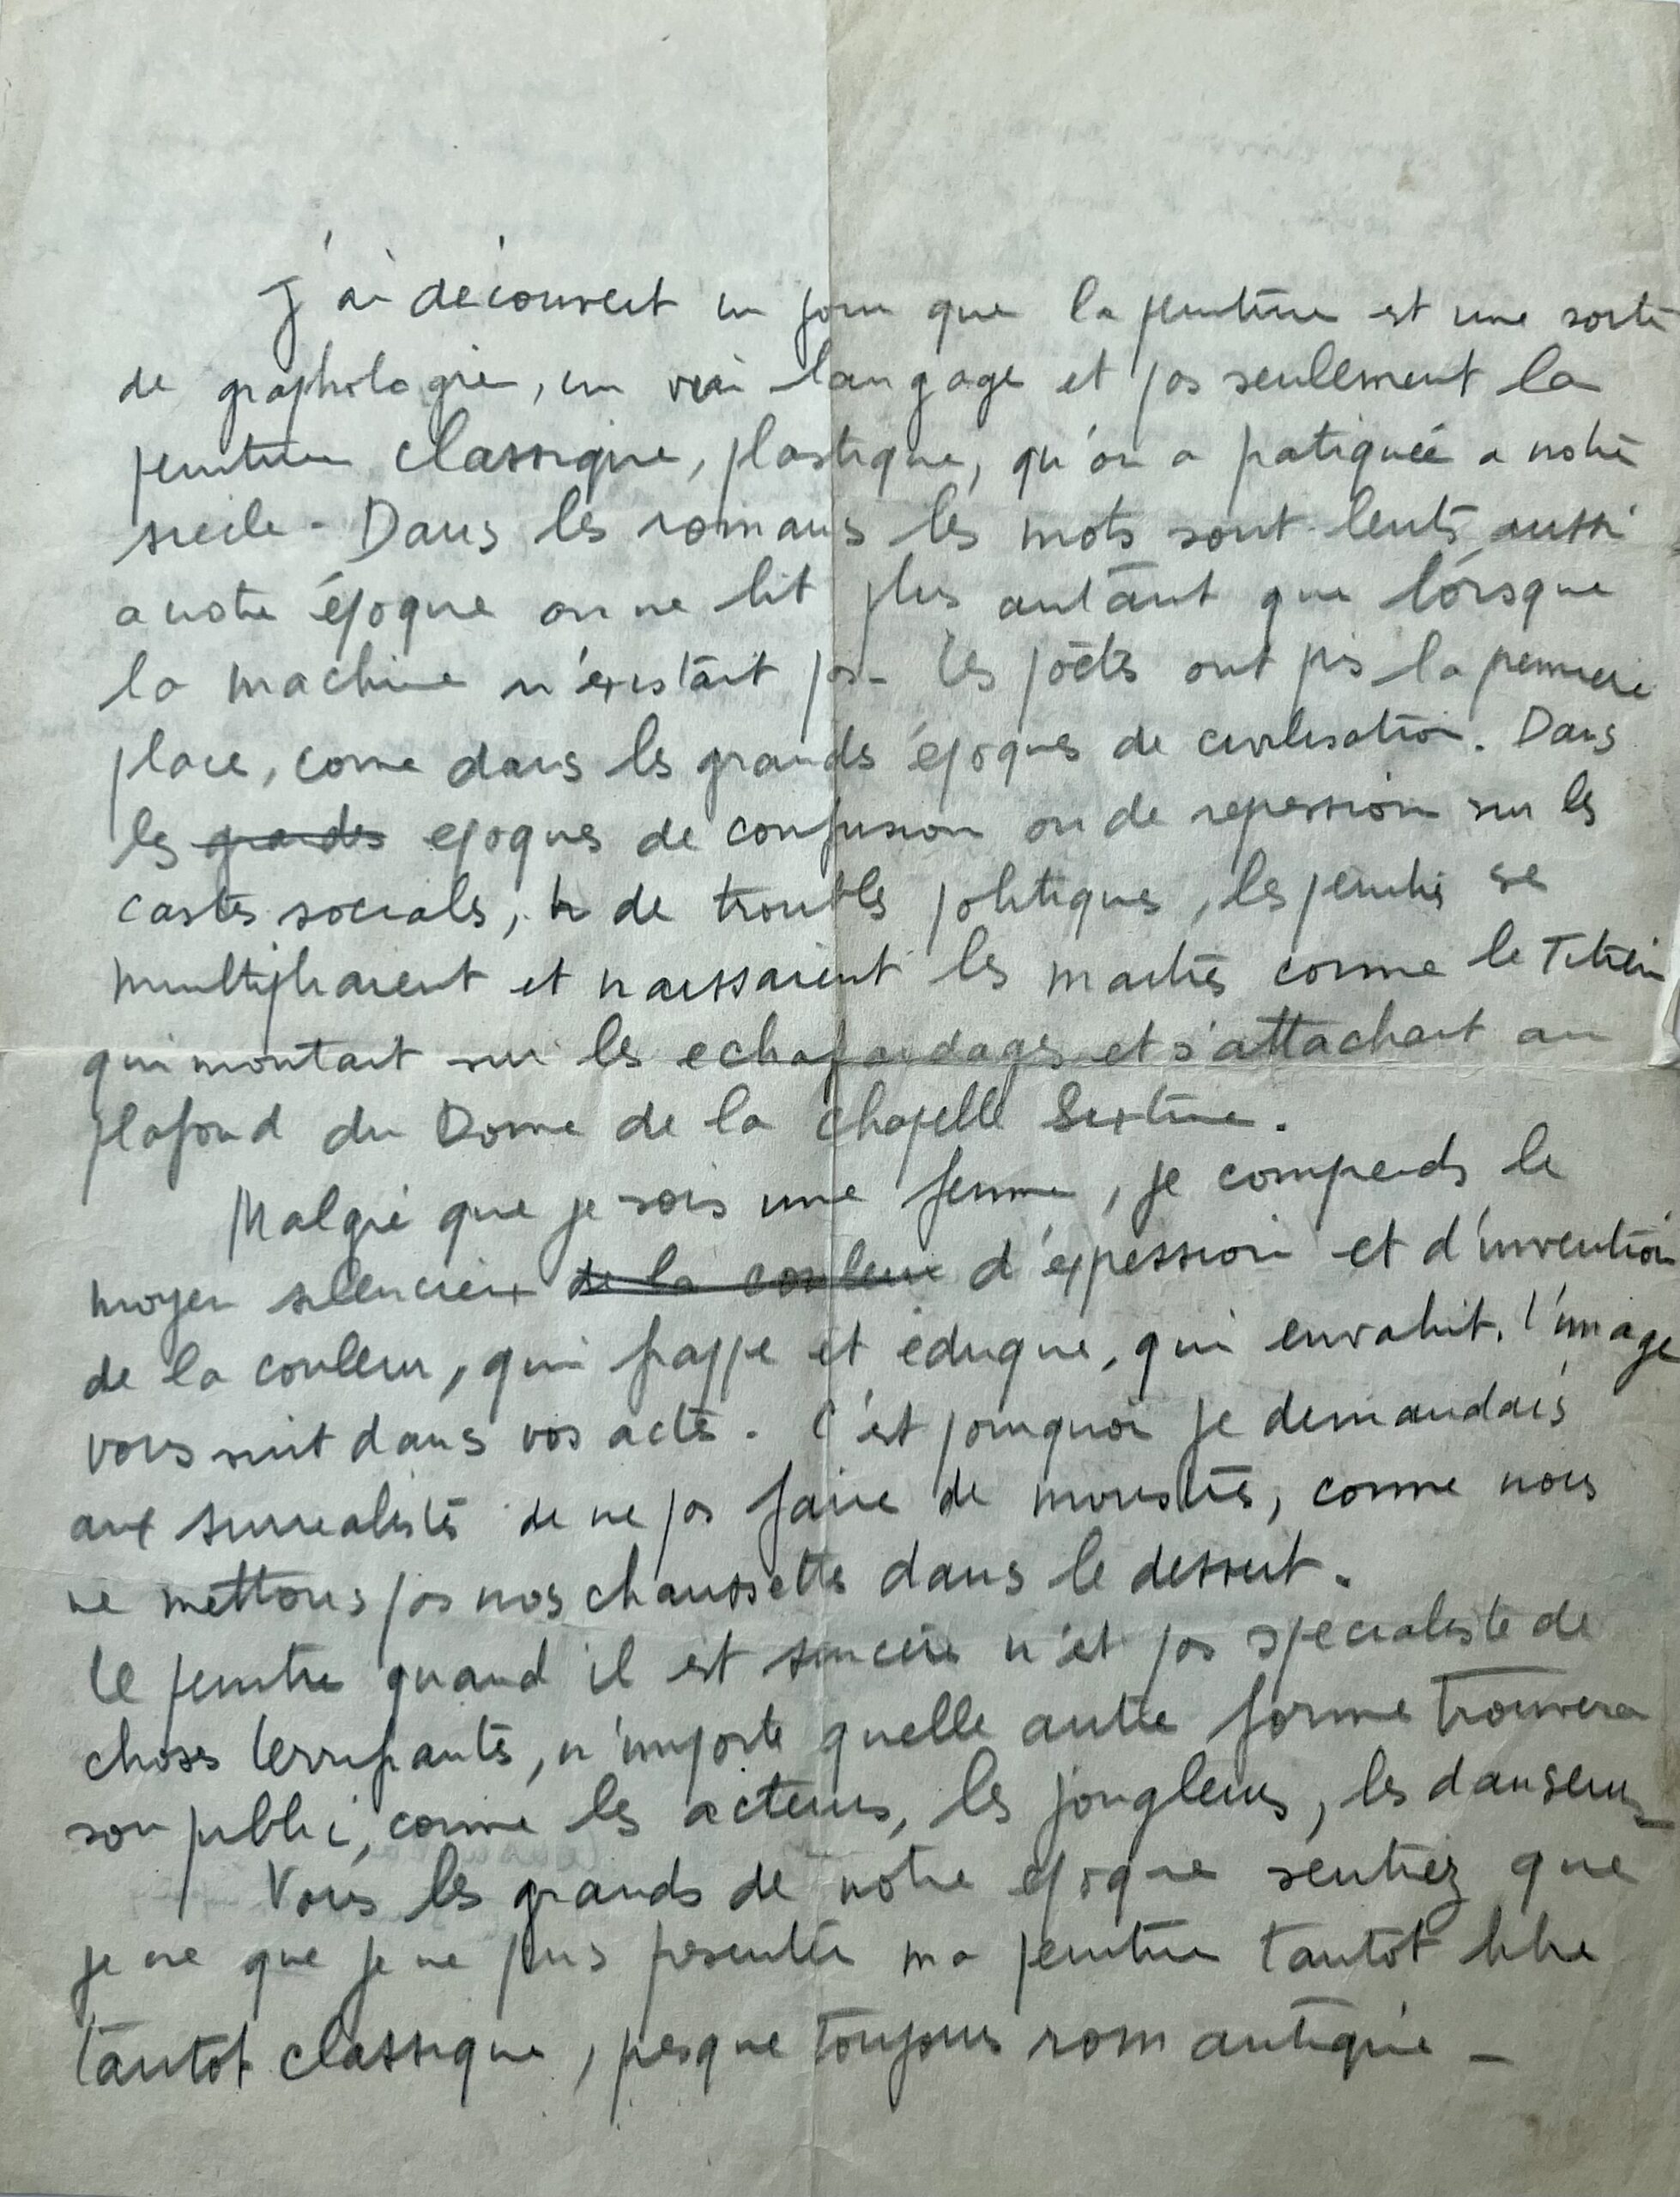 J'ai découvert un jour que la peinture est une sorte
de graphologie, un vrai langage et pas seulement la
peinture classique, plastique, qu'on a pratiquée a notre
siecle - Dans les romans les mots sont lents, aussi
a notre époque on ne lit plus autant que lorsque
la machine n'existait pas - Les poètes ont pris la premiere
place, come dans les grands époques de civilisation. Dans
les grandes epoques de confusion ou de repression sur les
castes socials, de troubles politiques, les peintres se
multipliaient et naissaient les maitres comme le Titien
qui montait sur les echafaudages et s'attachait au
plafond du Dome de la chapelle Sextine.
Malgré que je sois une femme, je comprends le
moyen silencieux de la couleur d'expression et d'invention
de la couleur, qui frappe et eduque, qui envahit. l'image
vous suit dans vos actes. C'est pourquoi je demandais
aux surrealistes de ne pas faire de monstres, comme nous
ne mettons pas nos chaussettes dans le dessert.
Le peintre quand il est sincère n'est pas specialiste de
choses terrifiantes, n'importe quelle autre forme trouvera
son public, comme les acteurs, les jongleurs, les danseurs -
Vous les grands de notre epoque sentiez que
je ne que je ne puis presenter ma peinture tantot libre
tantot classique, presque toujours romantique -